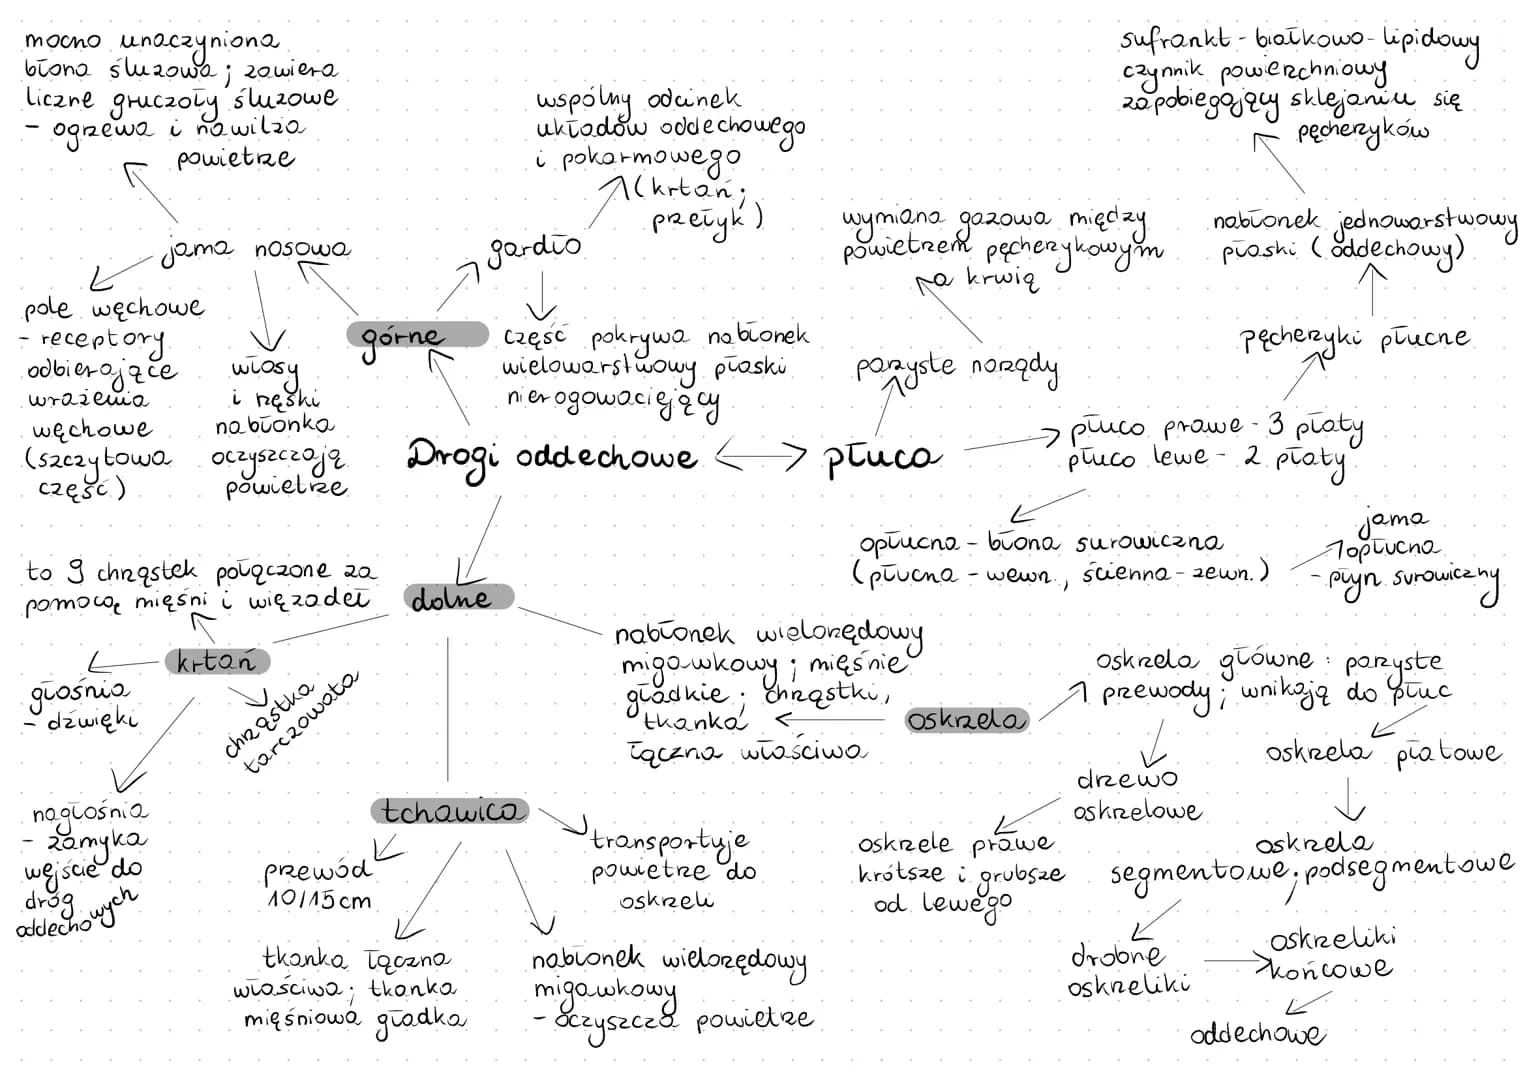 mocno unaczyniona
błona śluzowa; zawiera
liczne gruczoły śluzowe
- ogrzewa i nawilża
powietrze
jama nosowa
pole węchowe
- receptory
odbierające
wrażenia
węchowe
(szczytowa
część)
włosy
i rzęski
nabłonka
oczyszczają
powietrze
górne
wspólny odcinek
układów oddechowego
i pokarmowego
(krtań;
przełyk)
gardło
część pokrywa nabłonek
wielowarstwowy płaski
nierogowaciejący
Drogi oddechowe
płuca
parzyste narządy
wymiana gazowa między
powietrzem pęcherzykowym
a krwią
sufrankt - białkowo-lipidowy
czynnik powierzchniowy
zapobiegający sklejaniu się
pęcherzyków
nabłonek jednowarstwowy
płaski (oddechowy)
pęcherzyki płucne
płuco prawe - 3 płaty
płuco lewe - 2 płaty
opłucna - błona surowiczna
(płucna - wewn., ścienna - zewn.)
jama
opłucna
- płyn surowiczny
dolne
to 9 chrząstek połączone za
pomocą mięśni i więzadeł
krtań
głośnia
- dźwięki
chrząstka
tarczowata
nagłośnia
- zamyka
wejście do
dróg
oddechowych
tchawica
przewód
10/15cm
tkanka łączna
właściwa; tkanka
mięśniowa gładka
nabłonek wielorzędowy
migawkowy
- oczyszcza powietrze
transportuje
powietrze do
oskrzeli
nabłonek wielorzędowy
migawkowy; mięśnie
gładkie; chrząstki,
tkanka
łączna właściwa
oskrzela
oskrzela główne: parzyste
przewody; wnikają do płuc
drzewo
oskrzelowe
oskrzele prawe
krótsze i grubsze
od lewego
oskrzela płatowe
oskrzela
segmentowe; podsegmentowe
drobne
oskrzeliki
oskrzeliki
końcowe
oddechowe